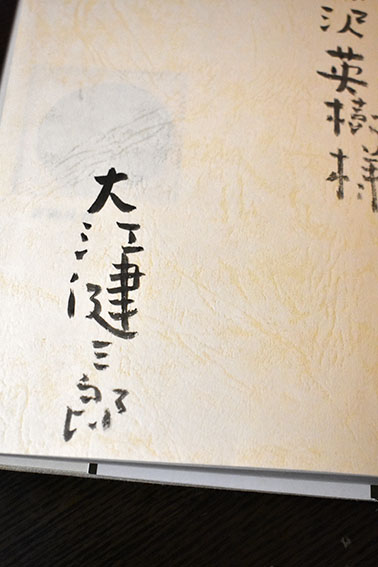 沢英樹様
大江健三郎